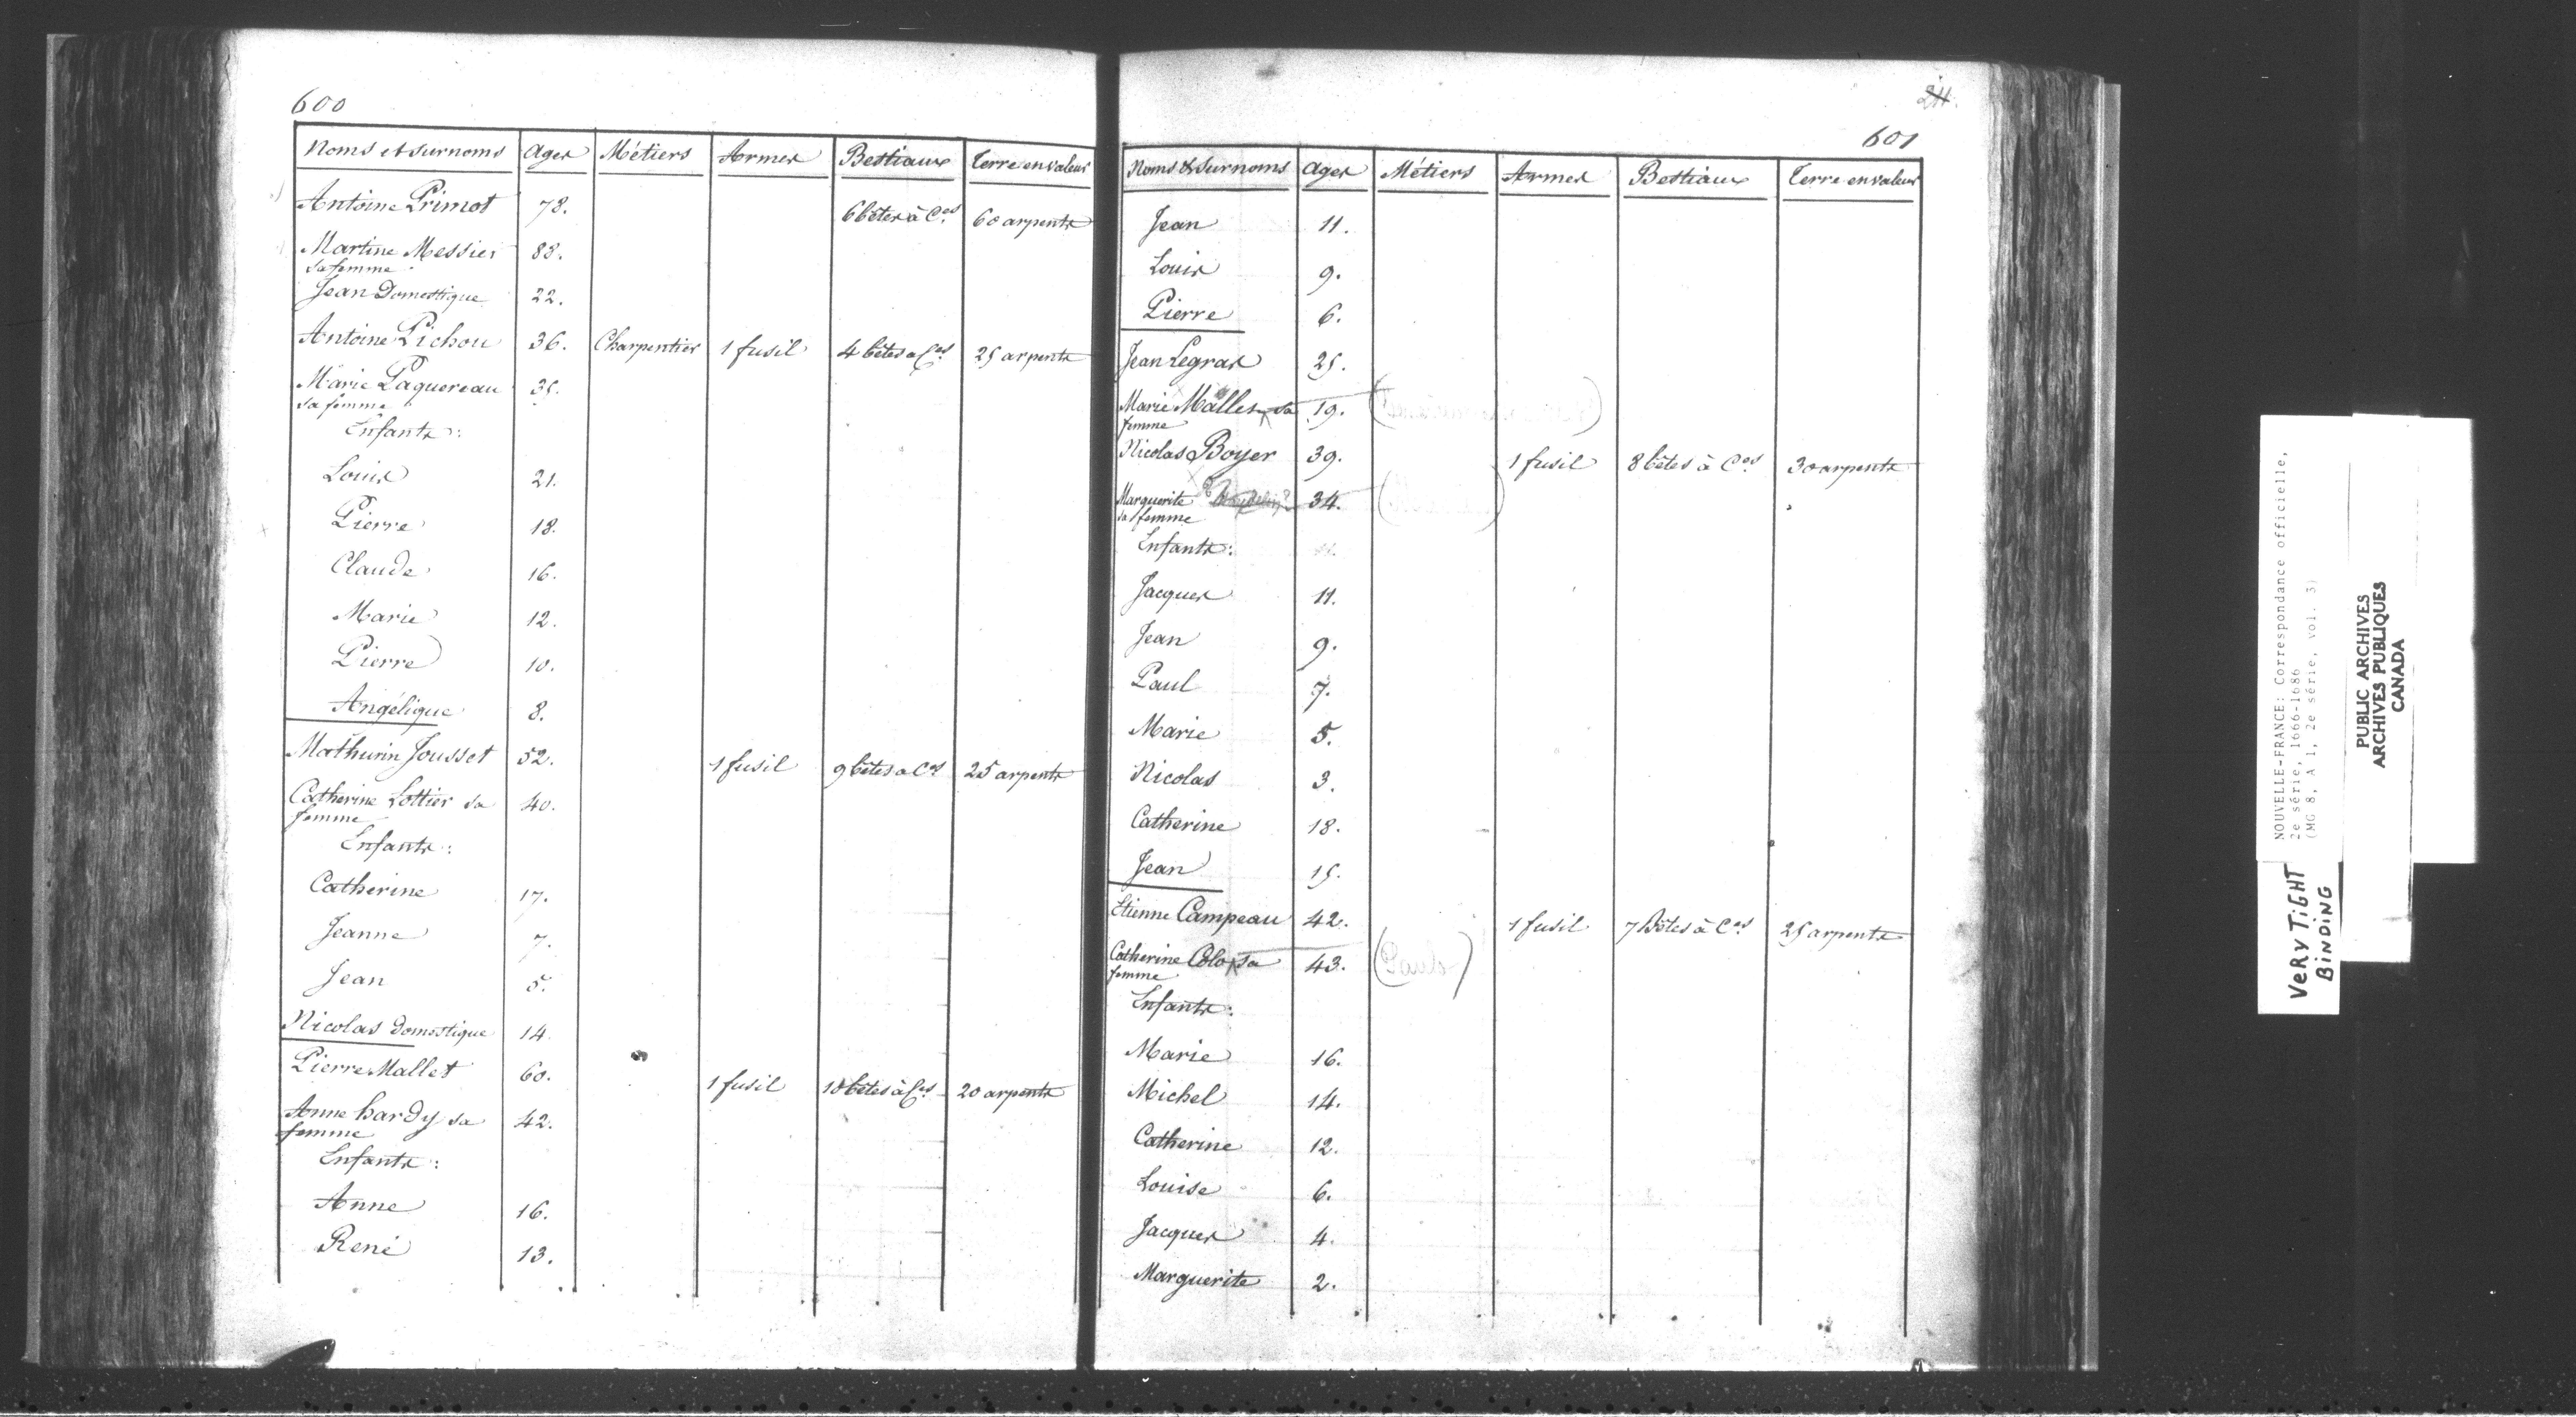 600
Noms et surnoms Ages Métiers Armes Bestiaux Terre en valeur
Antoine Primot 78. 6 bêtes à C.es 60 arpents
Martine Messier 88.
sa femme
Jean Domestique 22.
Antoine Pichou 36. Charpentier 1 fusil 4 bêtes à C.es 25 arpents
Marie Paquereau 35.
sa femme
Enfants:
Louis 21.
Pierre 18.
Claude 16.
Marie 12.
Pierre 10.
Angélique 8.
Mathurin Jousset 52. 1 fusil 9 bêtes à C.es 25 arpents
Catherine Lottier sa 40.
femme
Enfants:
Catherine 17.
Jeanne 7.
Jean 5.
Nicolas domestique 14.
Pierre Mallet 60. 1 fusil 10 bêtes à C.es 20 arpents
Anne hardy sa 42.
femme
Enfants:
Anne 16.
René 13.
211.
601
Noms & Surnoms Ages Métiers Armes Bestiaux Terre en valeur
Jean 11.
Louis 9.
Pierre 6.
Jean Legras 25.
Marie Malles sa 19.
femme
Nicolas Boyer 39. 1 fusil 8 bêtes à C.es 30 arpents
Marguerite 34.
sa femme
Enfants:
Jacques 11.
Jean 9.
Paul 7.
Marie 5.
Nicolas 3.
Catherine 18.
Jean 15.
Etienne Campeau 42. 1 fusil 7 Bêtes à C.es 25 arpents
Catherine Colo sa 43. (Paulo)
femme
Enfants:
Marie 16.
Michel 14.
Catherine 12.
Louise 6.
Jacques 4.
Marguerite 2.
NOUVELLE-FRANCE: Correspondance officielle,
2e série, 1666-1686
(MG 8, A 1, 2e série, vol. 3)
VERY TIGHT
BINDING
PUBLIC ARCHIVES
ARCHIVES PUBLIQUES
CANADA